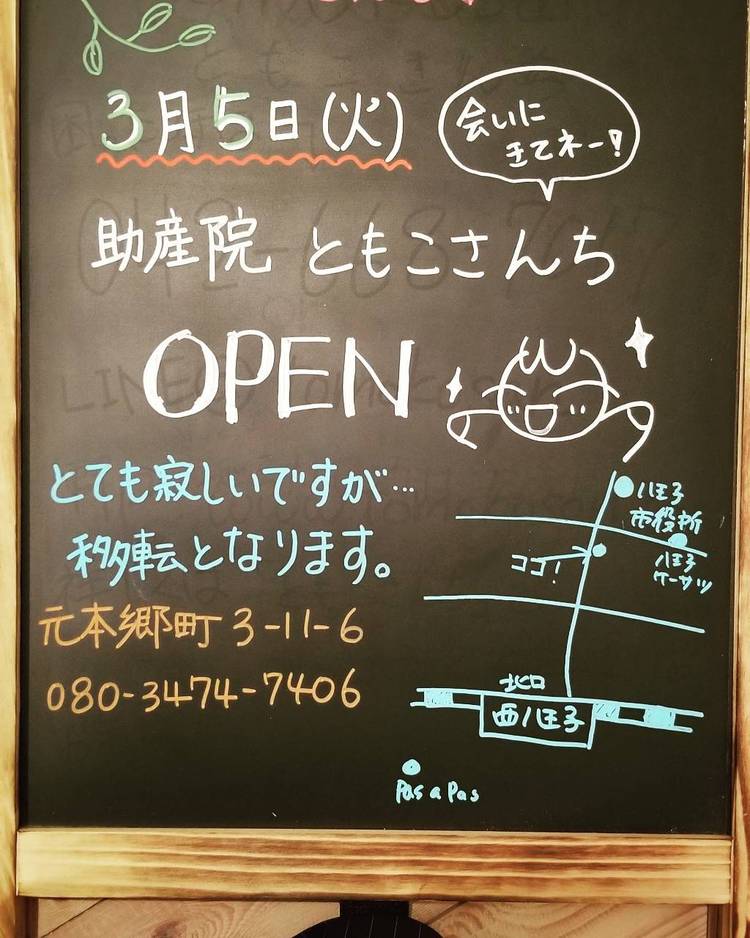 3月5日(火)
会いに
きてネー!
助産院 ともこさんち
OPEN
とても寂しいですが…
移転となります。
元本郷町 3-11-6
080-3474-7406
八王子
市役所
八王子
ケーサツ
ココ!
北口
西八王子
Pas a Pas